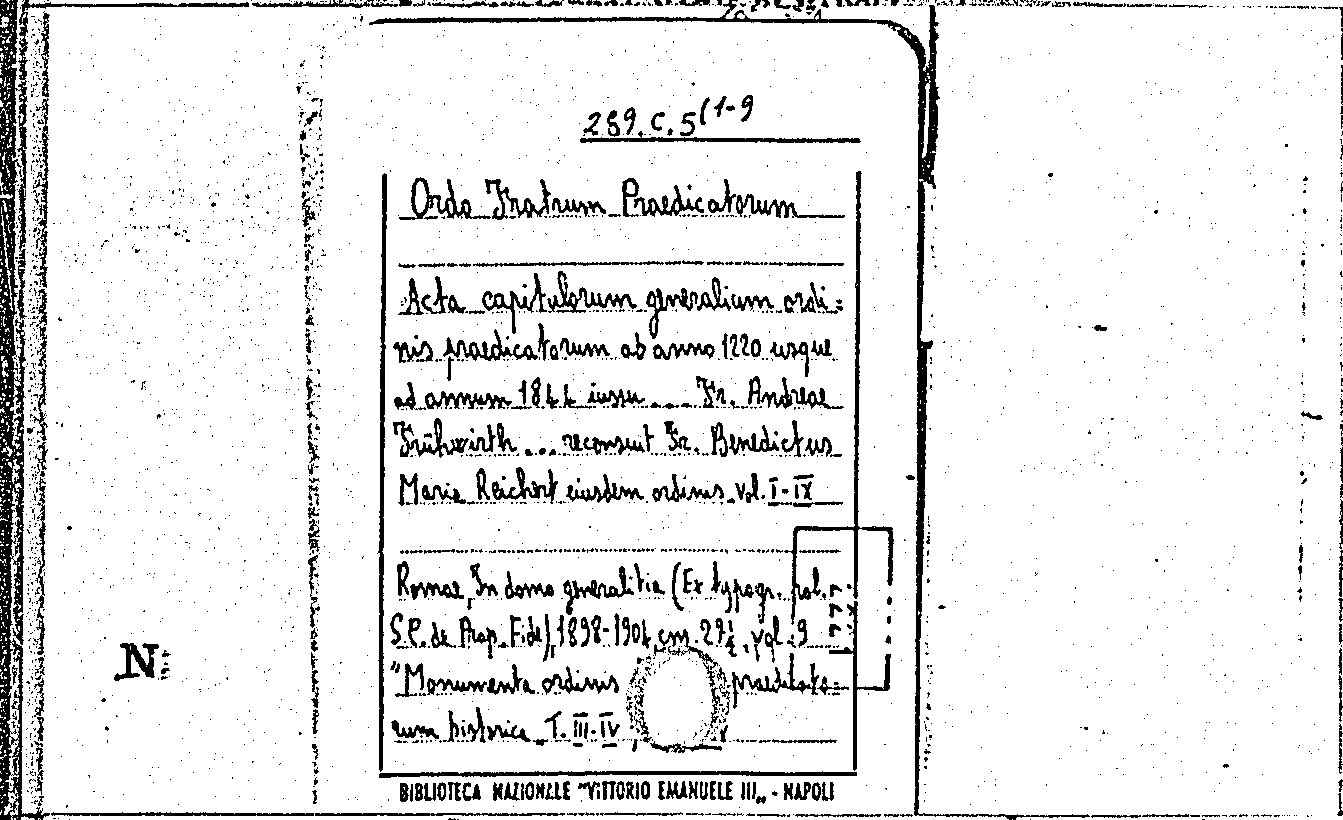 289.C.5(1-9
Ordo Fratrum Praedicatorum
Acta capitulorum generalium ordi=
nis praedicatorum ab anno 1220 usque
ad annum 1844 iussu ... Fr. Andreae
Frühwirth ... recensuit Fr. Benedictus
Maria Reichert eiusdem ordinis vol. I-IX
Romae, In domo generalitia (Ex typogr. pol.
S.C. de Prop. Fide), 1898-1904 cm. 27½. vol. 9
"Monumenta ordinis praedicato=
rum historica T. III-IV
N
BIBLIOTECA NAZIONALE "VITTORIO EMANUELE III" - NAPOLI